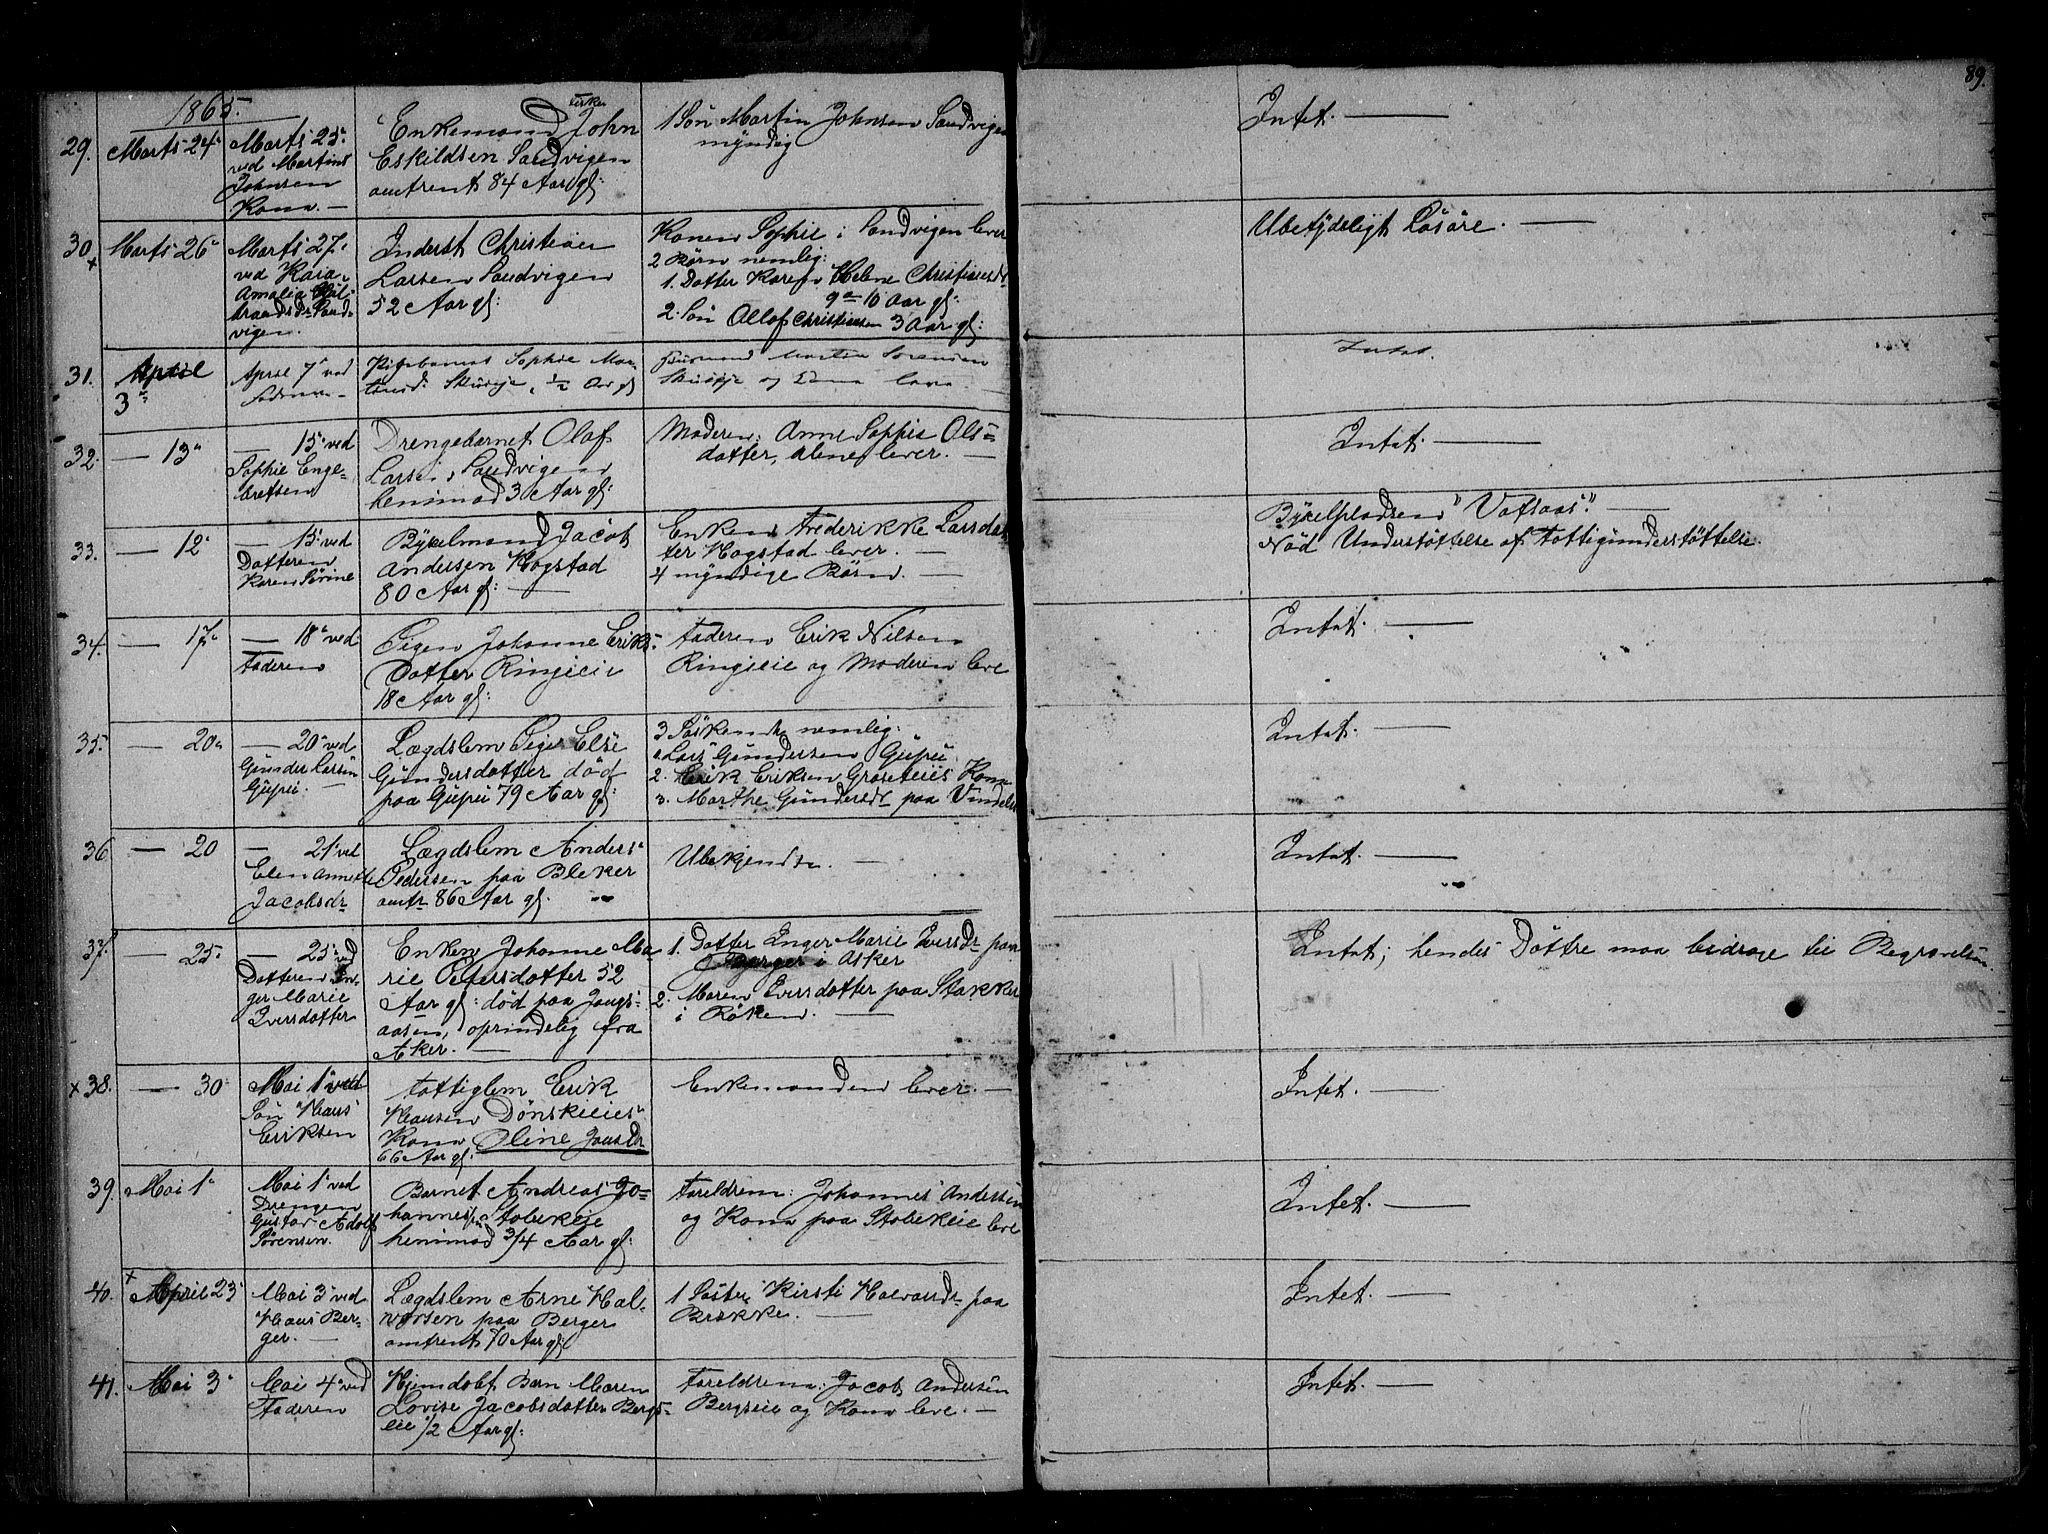 89.
1865.
29.
Marts 24
Marts 25
ved Martins
Johnsen
Kona. —
Enkemand Fisker John
Eskildsen Sandvigen
omtrent 84 Aar gl:
1 Søn Martin Johnsen Sandvigen
myndig
Intet. —
30
Marts 26
Marts 27
ved Kaia
Amalia
Sand-
vigen.
Inderst Christian
Larsen Sandvigen
52 Aar gl:
Konen Sophie i Sandvigen lever
2 Børn nemlig:
1. Datter Karen Helene Christiansdr
9 a 10 Aar gl:
2. Søn Ollaf Christiansen 3 Aar gl:
Ubetydeligt Løsøre. —
31.
April
3
April 7 ved
Pigebarnet Sophie Mar-
1/2 Aar gl
Martin Sorensen
og Kona leve
Intet.
32.
— 13
— 15 ved
Sophie Enge-
bretsen
Drengebarnet Olaf
Larsen, Sandvigen
henimod 3 Aar gl:
Moderen: Anne Sophie Ols-
datter, alene lever. —
Intet. —
33.
— 12
— 15 ved
Datteren
Karen Sørine
Byxelmand Jacob
Andersen Hogstad
80 Aar gl: —
Enken Frederikke Larsdat
ter Hogstad lever. —
4 myndige Børn. —
Byxelpladsen —
Nød Understøttelse af Fattigunderstøttelse.
34.
— 17
— 18 ved
Faderen
Pigen Johanne Eriks-
Datter Ringieie
18 Aar gl:
Faderen Erik Nilsen
Ringieie og Moderen leve
Intet. —
35.
— 20
— 20 ved
Gunder Larsen
Gupu. —
Lægdslem Pige Else
Gundersdatter død
paa Gupu 79 Aar gl:
3 Søskende nemlig:
1. Lars Gundersen Gupu
2. Erik Eriksen Kona
3. Marthe Gundersdr paa
Intet. —
36
— 20
— 21 ved
Elen Annette
Jacobsdr
Lægdslem Anders
Pedersen paa Bleker
omtr 86 Aar gl.
Ubekjendte. —
Intet. —
37.
— 25
— 25 ved
Datteren In-
ger Marie
Iversdatter
Enken Johanne Ma
rie Pedersdatter 52
Aar gl: død paa
aasen, oprindelig fra
Aker. —
1. Datter Inger Marie Iversdr paa
Berger i Asker
2. Maren Iversdatter paa Stokker
i Røken. —
Intet; hendes Døttre maa bidrage til Begravelsen.
x 38.
— 30
Mai 1 ved
Søn Klaus
Eriksen
Fattiglem Erik
Klausen Dønskieies
Kona Oline Jansdr
66 Aar gl.
Enkemanden lever. —
Intet. —
39.
Mai 1
Mai 1 ved
Drengen
Gustav Adolf
Sørensen.
Barnet Andreas Jo-
hannesen Stobekeie
henimod 3/4 Aar gl:
Forældrene: Johannes Andersen
og Kona paa Stobekeie leve
Intet. —
40.
April 23
Mai 3 ved
Klaus Ber-
ger. —
Lægdslem Arne Hal-
vorsen paa Berger
omtrent 70 Aar gl:
1 Søster Kirsti Halvorsdr paa
Brække. —
Intet. —
41.
Mai 3
Mai 4 ved
Faderen
Hjemdøbt Barn Maren
Lovise Jacobsdatter Bergs-
eie 1/2 Aar gl:
Forældrene: Jacob Andersen
Bergseie og Kona leve. —
Intet. —